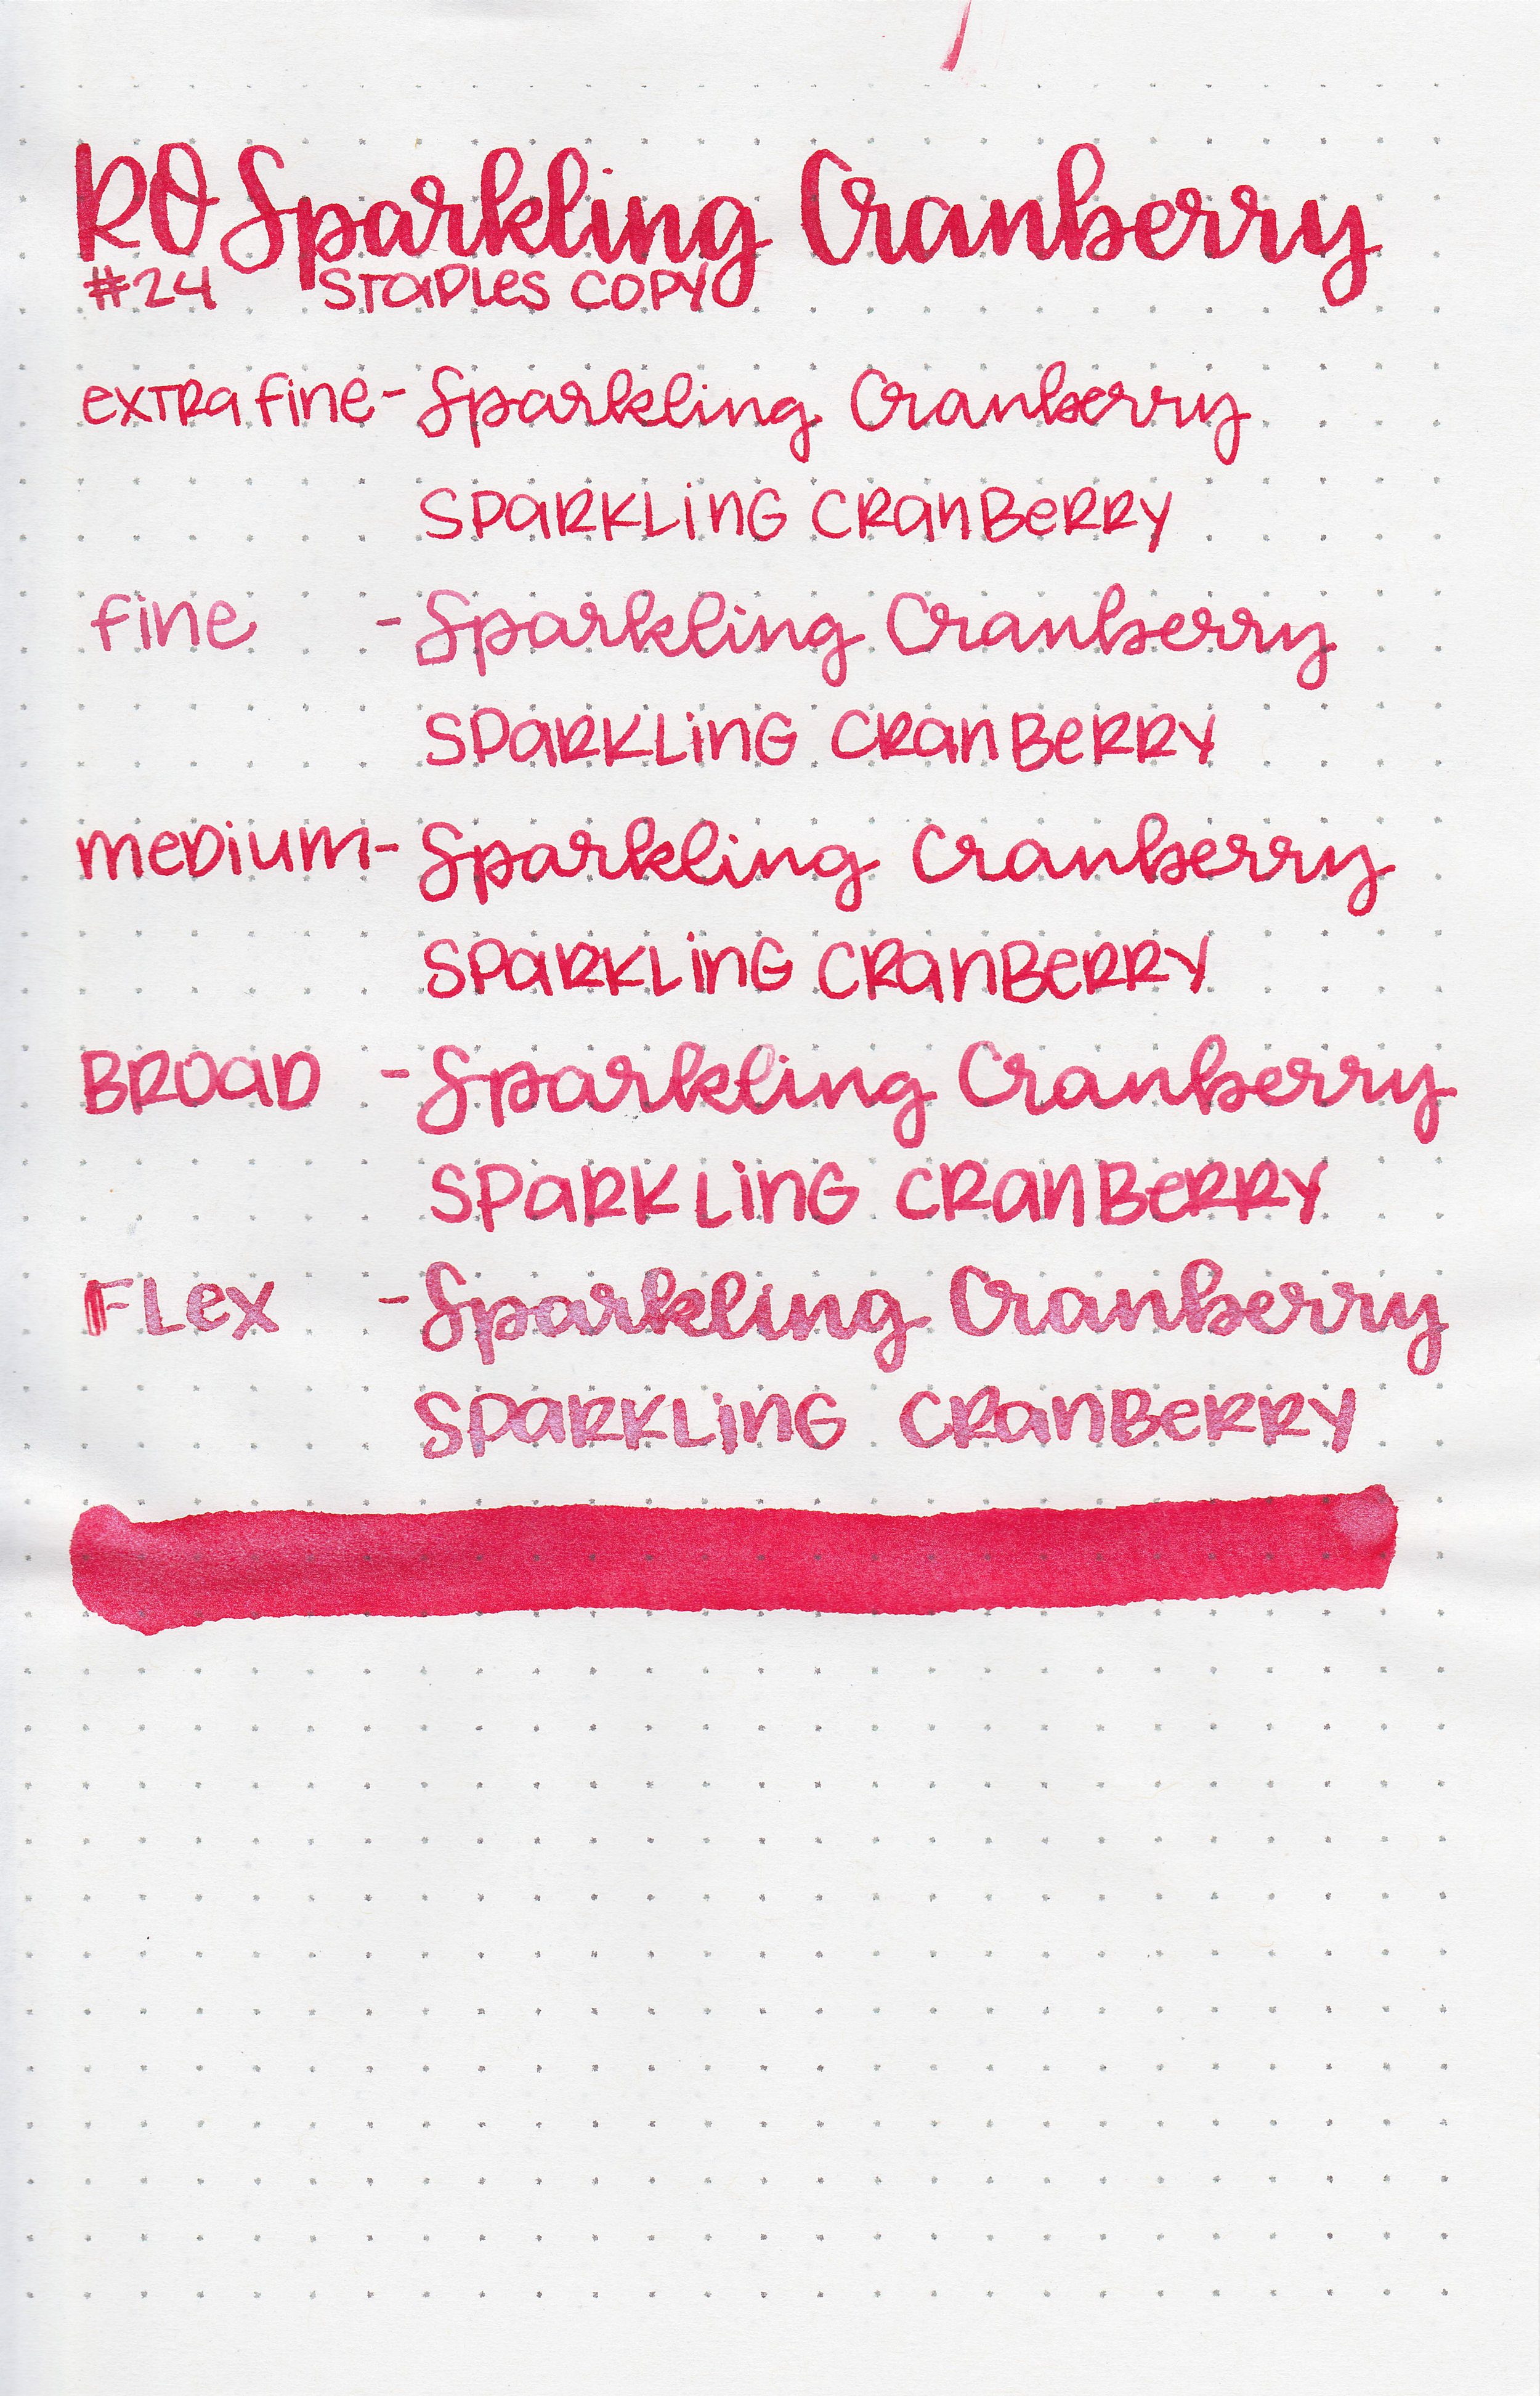 RO Sparkling Cranberry
#24 STAPLES COPY
extra fine - Sparkling Cranberry
SPARKLING CRANBERRY
fine - Sparkling Cranberry
SPARKLING CRANBERRY
medium - Sparkling Cranberry
SPARKLING CRANBERRY
BROAD - Sparkling Cranberry
SPARKLING CRANBERRY
FLex - Sparkling Cranberry
SPARKLING CRANBERRY